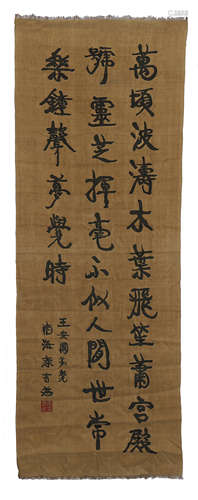 萬頃波濤木葉飛笙蕭宮殿
號靈芝揮毫不似人間世常
樂鐘聲夢覺時
王安國
南海康有為